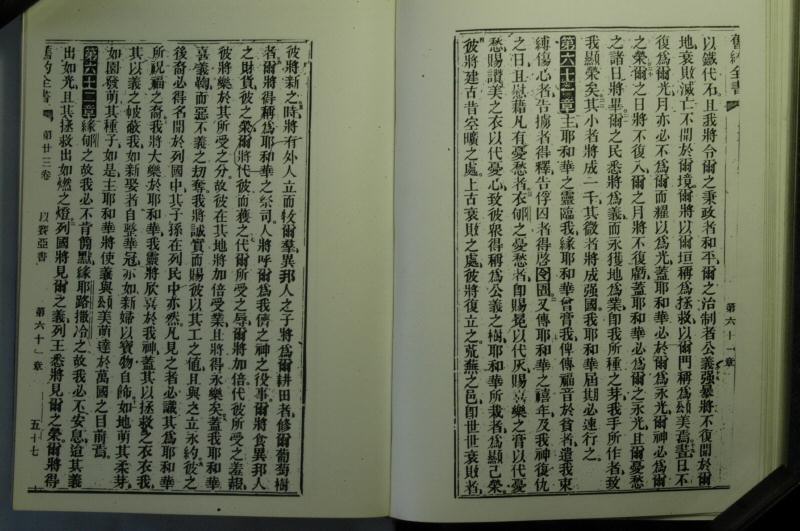 舊約全書
第六十一章
以鐵代石且我將令爾之秉政者和平爾之治制者公義强暴將不復聞於爾
地衰敗滅亡不聞於爾境爾將以爾垣稱爲拯救以爾門稱爲頌美焉晝日不
復爲爾光月亦必不爲爾而耀以爲光蓋耶和華必於爾爲永光爾神必爲爾
之榮爾之日將不復入爾之月將不復虧蓋耶和華必爲爾之永光且爾憂愁
之諸日將畢爾之民悉將爲義而永獲地爲業卽我所種之芽我手所作者致
我顯榮矣其小者將成一千其微者將成强國我耶和華屆期必速行之
第六十一章主耶和華之靈臨我緣耶和華曾膏我俾傳福音於貧者遣我束
縛傷心者告擄者得釋告俘囚者得啓囹圄又傳耶和華之禧年及我神復仇
之日且慰藉凡有憂愁者於郇之憂愁者卽賜冕以代灰賜喜樂之膏以代憂
愁賜讚美之衣以代憂心致彼衆得稱爲公義之樹耶和華所栽者爲顯己榮
彼將建古昔空曠之處上古衰敗之處彼將復立之荒蕪之邑卽世世衰敗者
彼將新之時將有外人立而牧爾羣異邦人之子將爲爾耕田者修爾葡萄樹
者爾將得稱爲耶和華之祭司人將呼爾爲我儕之神之役事爾將食異邦人
之財貨彼之榮爾將代彼而獲之代爾所受之辱爾將加倍代彼所受之羞報
彼將樂於其所受之分故彼在其地將加倍受業且將得永樂矣蓋我耶和華
喜義鞫而惡不義之刧奪我將誠實而賜彼以其工之値且與之立永約彼之
後裔必得名聞於列國中其子孫在列民中亦然凡見之者必識其爲耶和華
所祝福之裔我將大樂於耶和華我靈將欣喜於我神蓋其以拯救之衣衣我
其以義之帔蔽我如新娶者自整華冠亦如新婦以寶物自飾如地萌其柔芽
如園發萌其種子如是主耶和華將使義與頌美萌達於萬國之目前焉
第六十二章緣郇之故我必不肯簡默緣耶路撒冷之故我必不安息迨其義
出如光且其拯救出如燃之燈列國將見爾之義列王悉將見爾之榮爾將得
舊約全書
第廿三卷
以賽亞書
第六十一章
五十七